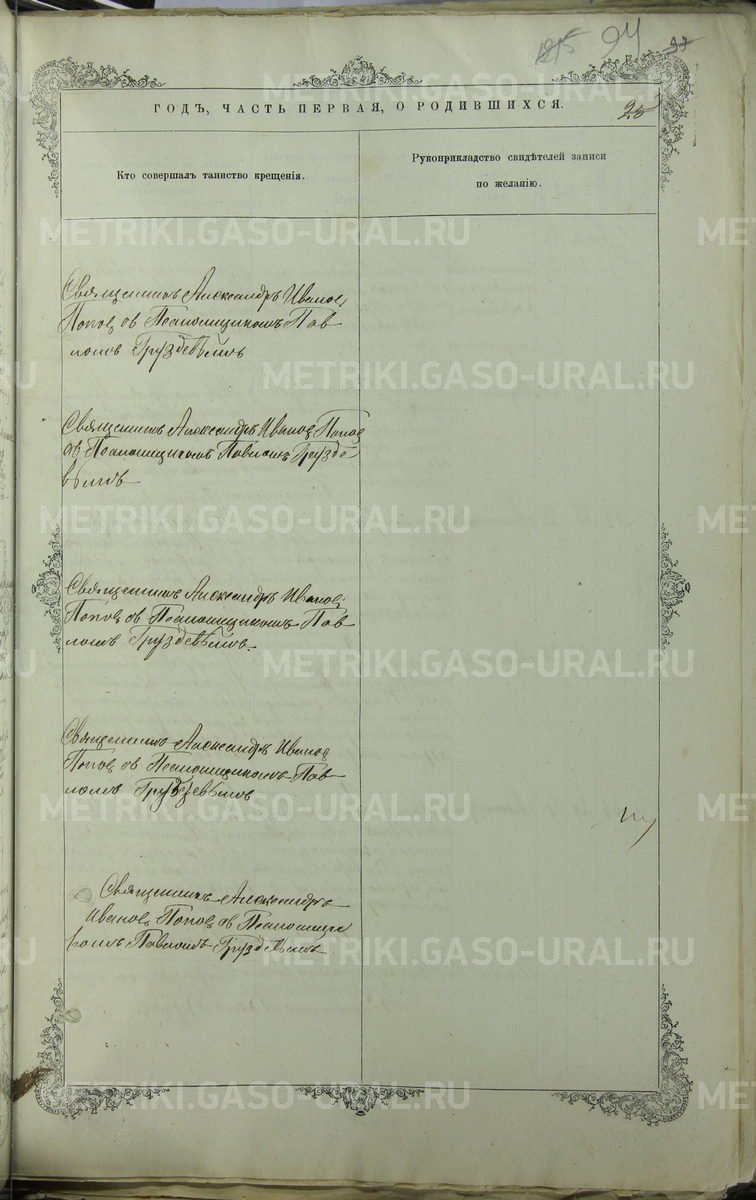 94
37
ГОДЪ, ЧАСТЬ ПЕРВАЯ, О РОДИВШИХСЯ.
Кто совершалъ таинство крещенія.
Рукоприкладство свидѣтелей записи
по желанію.
Священникъ Александръ Иванов
Попов съ Псаломщикомъ Пав
ломъ Груздевымъ
Священникъ Александръ Иванов Попов
съ Псаломщикомъ Павломъ Грузде-
вымъ
Священникъ Александръ Иванов
Попов съ Псаломщикомъ Пав
ломъ Груздевымъ.
Священникъ Александръ Иванов
Попов съ Псаломщикомъ Пав
ломъ Груздевымъ
Священникъ Александръ
Иванов Попов съ Псаломщи
комъ Павломъ Груздевымъ
METRIKI.GASO-URAL.RU